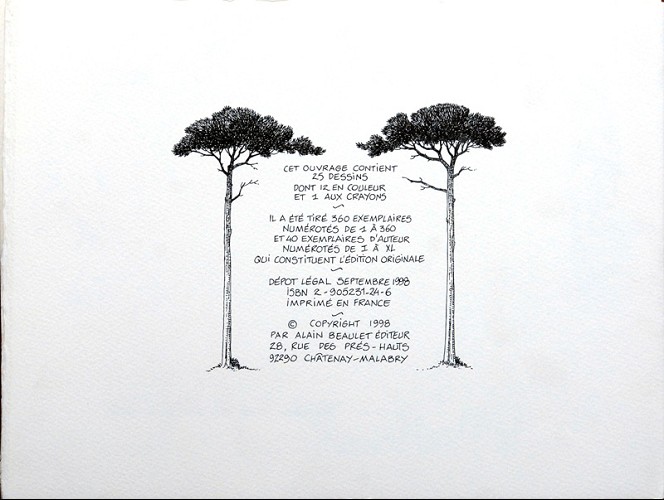 CET OUVRAGE CONTIENT
25 DESSINS
DONT 12 EN COULEUR
ET 1 AUX CRAYONS
IL A ÉTÉ TIRÉ 360 EXEMPLAIRES
NUMÉROTÉS DE 1 À 360
ET 40 EXEMPLAIRES D'AUTEUR
NUMÉROTÉS DE I À XL
QUI CONSTITUENT L'ÉDITION ORIGINALE
DÉPOT LÉGAL SEPTEMBRE 1998
ISBN 2-905231-24-6
IMPRIMÉ EN FRANCE
© COPYRIGHT 1998
PAR ALAIN BEAULET ÉDITEUR
28, RUE DES PRÉS-HAUTS
92290 CHÂTENAY-MALABRY